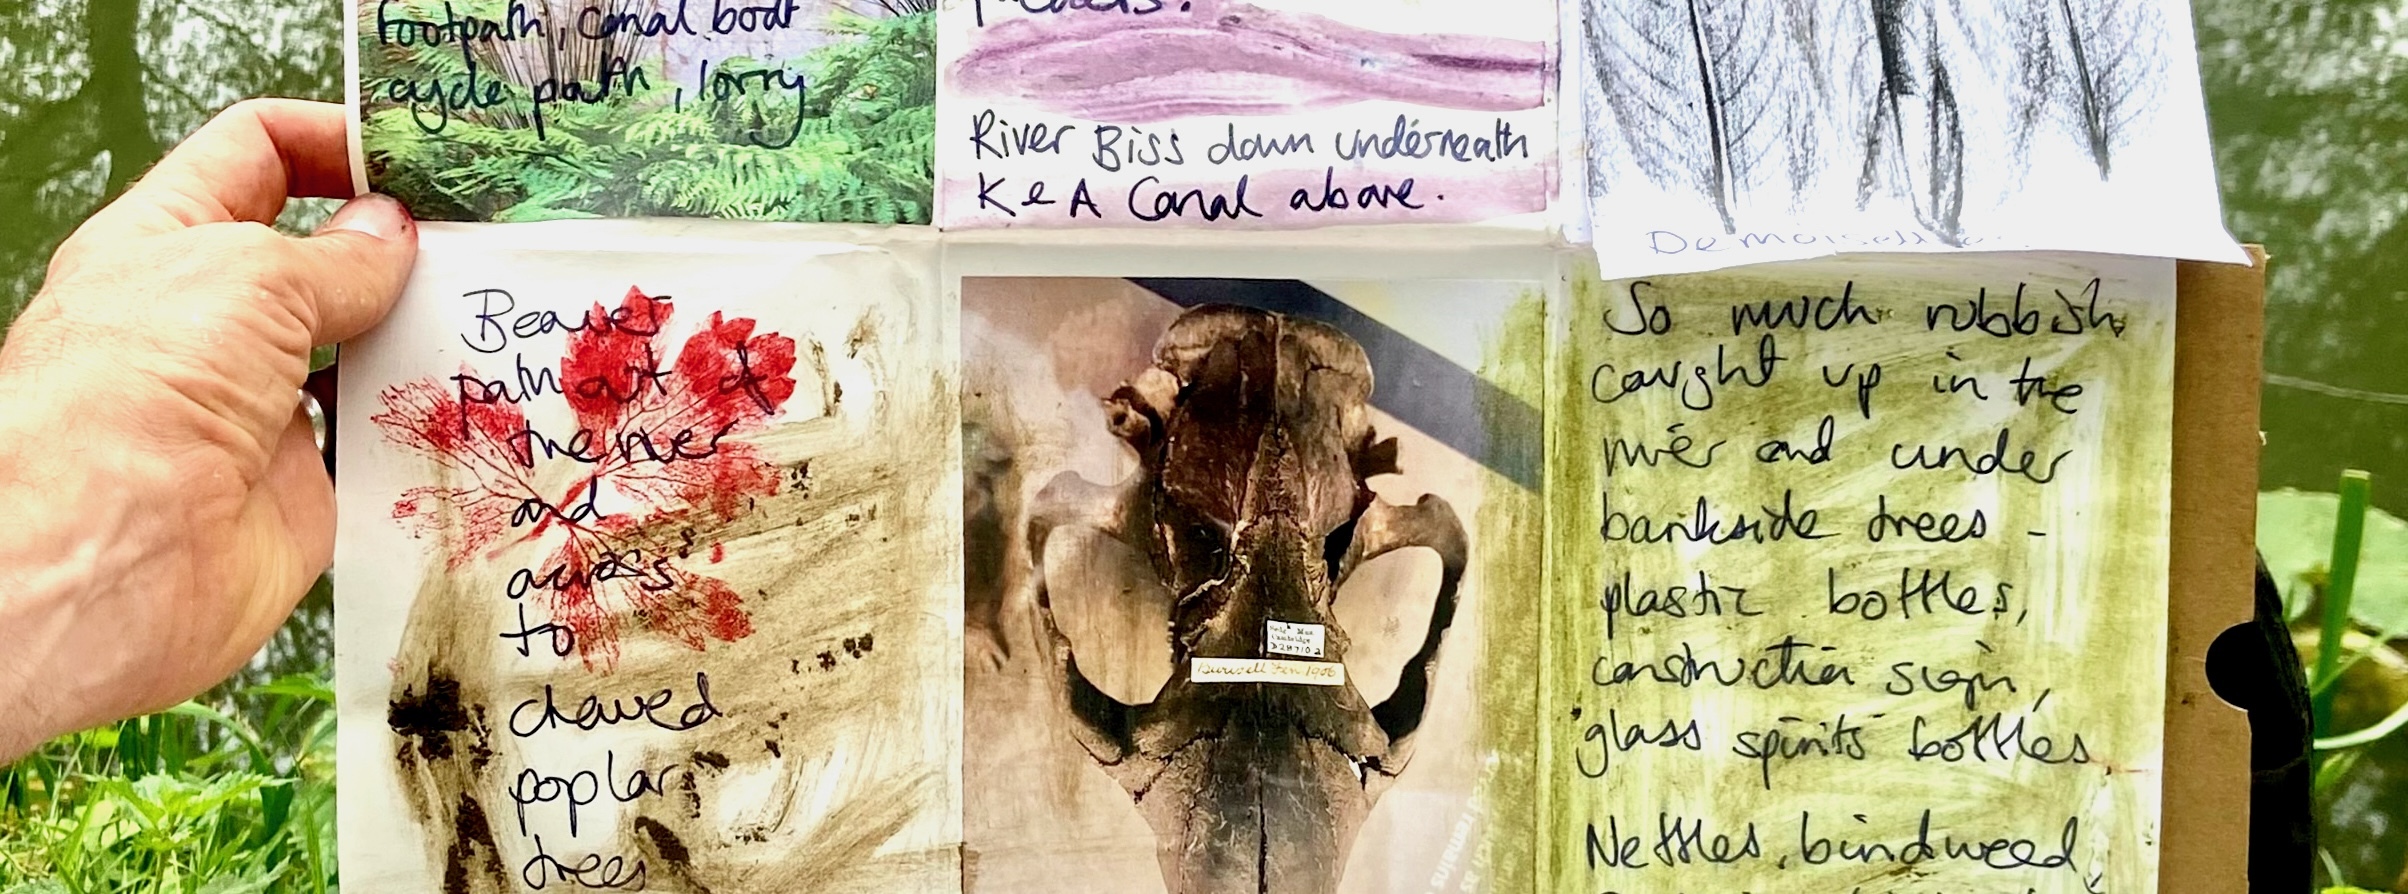 footpath, canal boat
cycle path, lorry
River Biss down underneath
K & A Canal above.
Demoiselle
Beaver
path out of
the river
and
across
to
chewed
poplar
trees
Burwell Fen 1906
So much rubbish
caught up in the
river and under
bankside trees -
plastic bottles,
construction sign,
glass spirits bottles
Nettles, bindweed